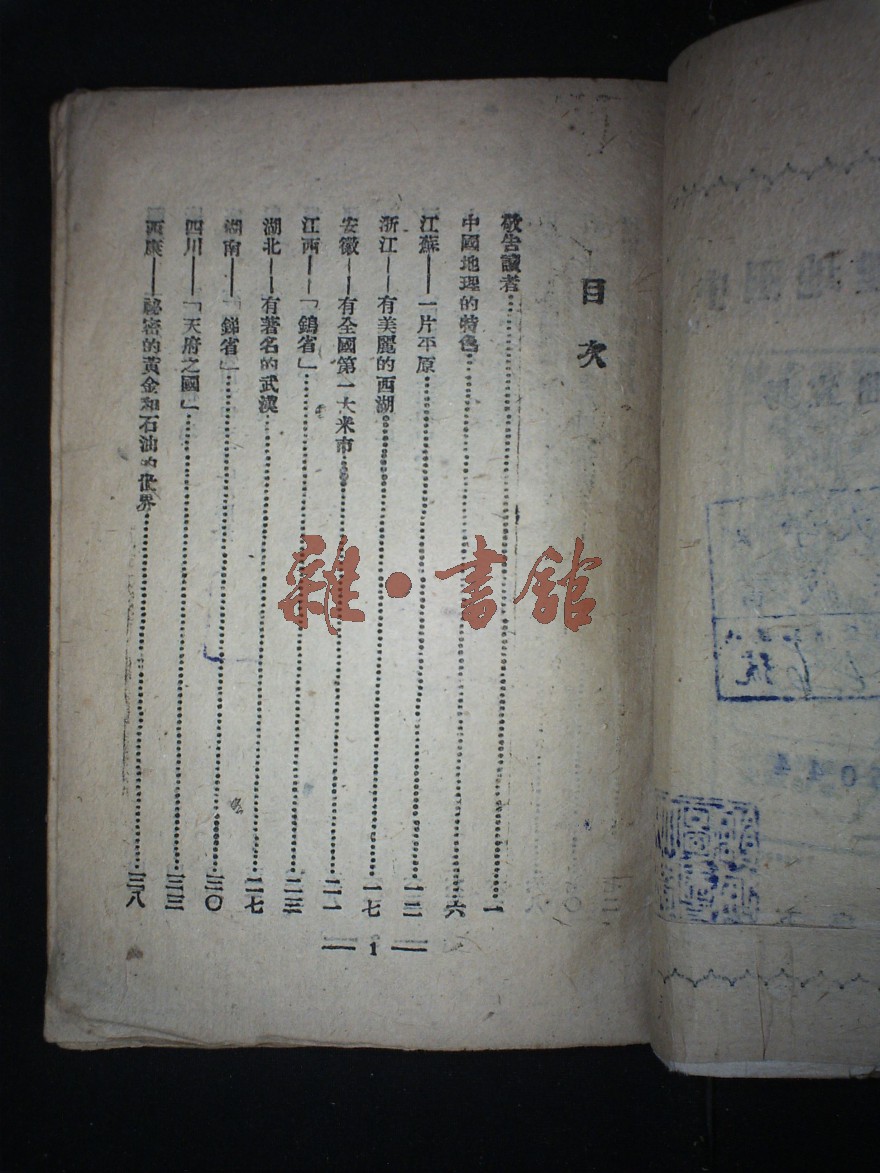 目次
敬告讀者⋯⋯一
中國地理的特色⋯⋯六
江蘇——一片平原⋯⋯一二
浙江——有美麗的西湖⋯⋯一七
安徽——有全國第一大米市⋯⋯二一
江西——「鎢省」⋯⋯二三
湖北——有著名的武漢⋯⋯二七
湖南——「銻省」⋯⋯三〇
四川——「天府之國」⋯⋯三三
西康——祕密的黃金和石油的世界⋯⋯三八
— 1 —
雜·書館